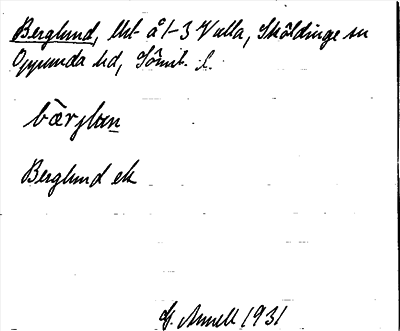 Berglund, lht å 1-3 Valla, Sköldinge sn
Oppunda hd, Sömil. l.
bærglɯn
Berglund ek
G. Annell 1931